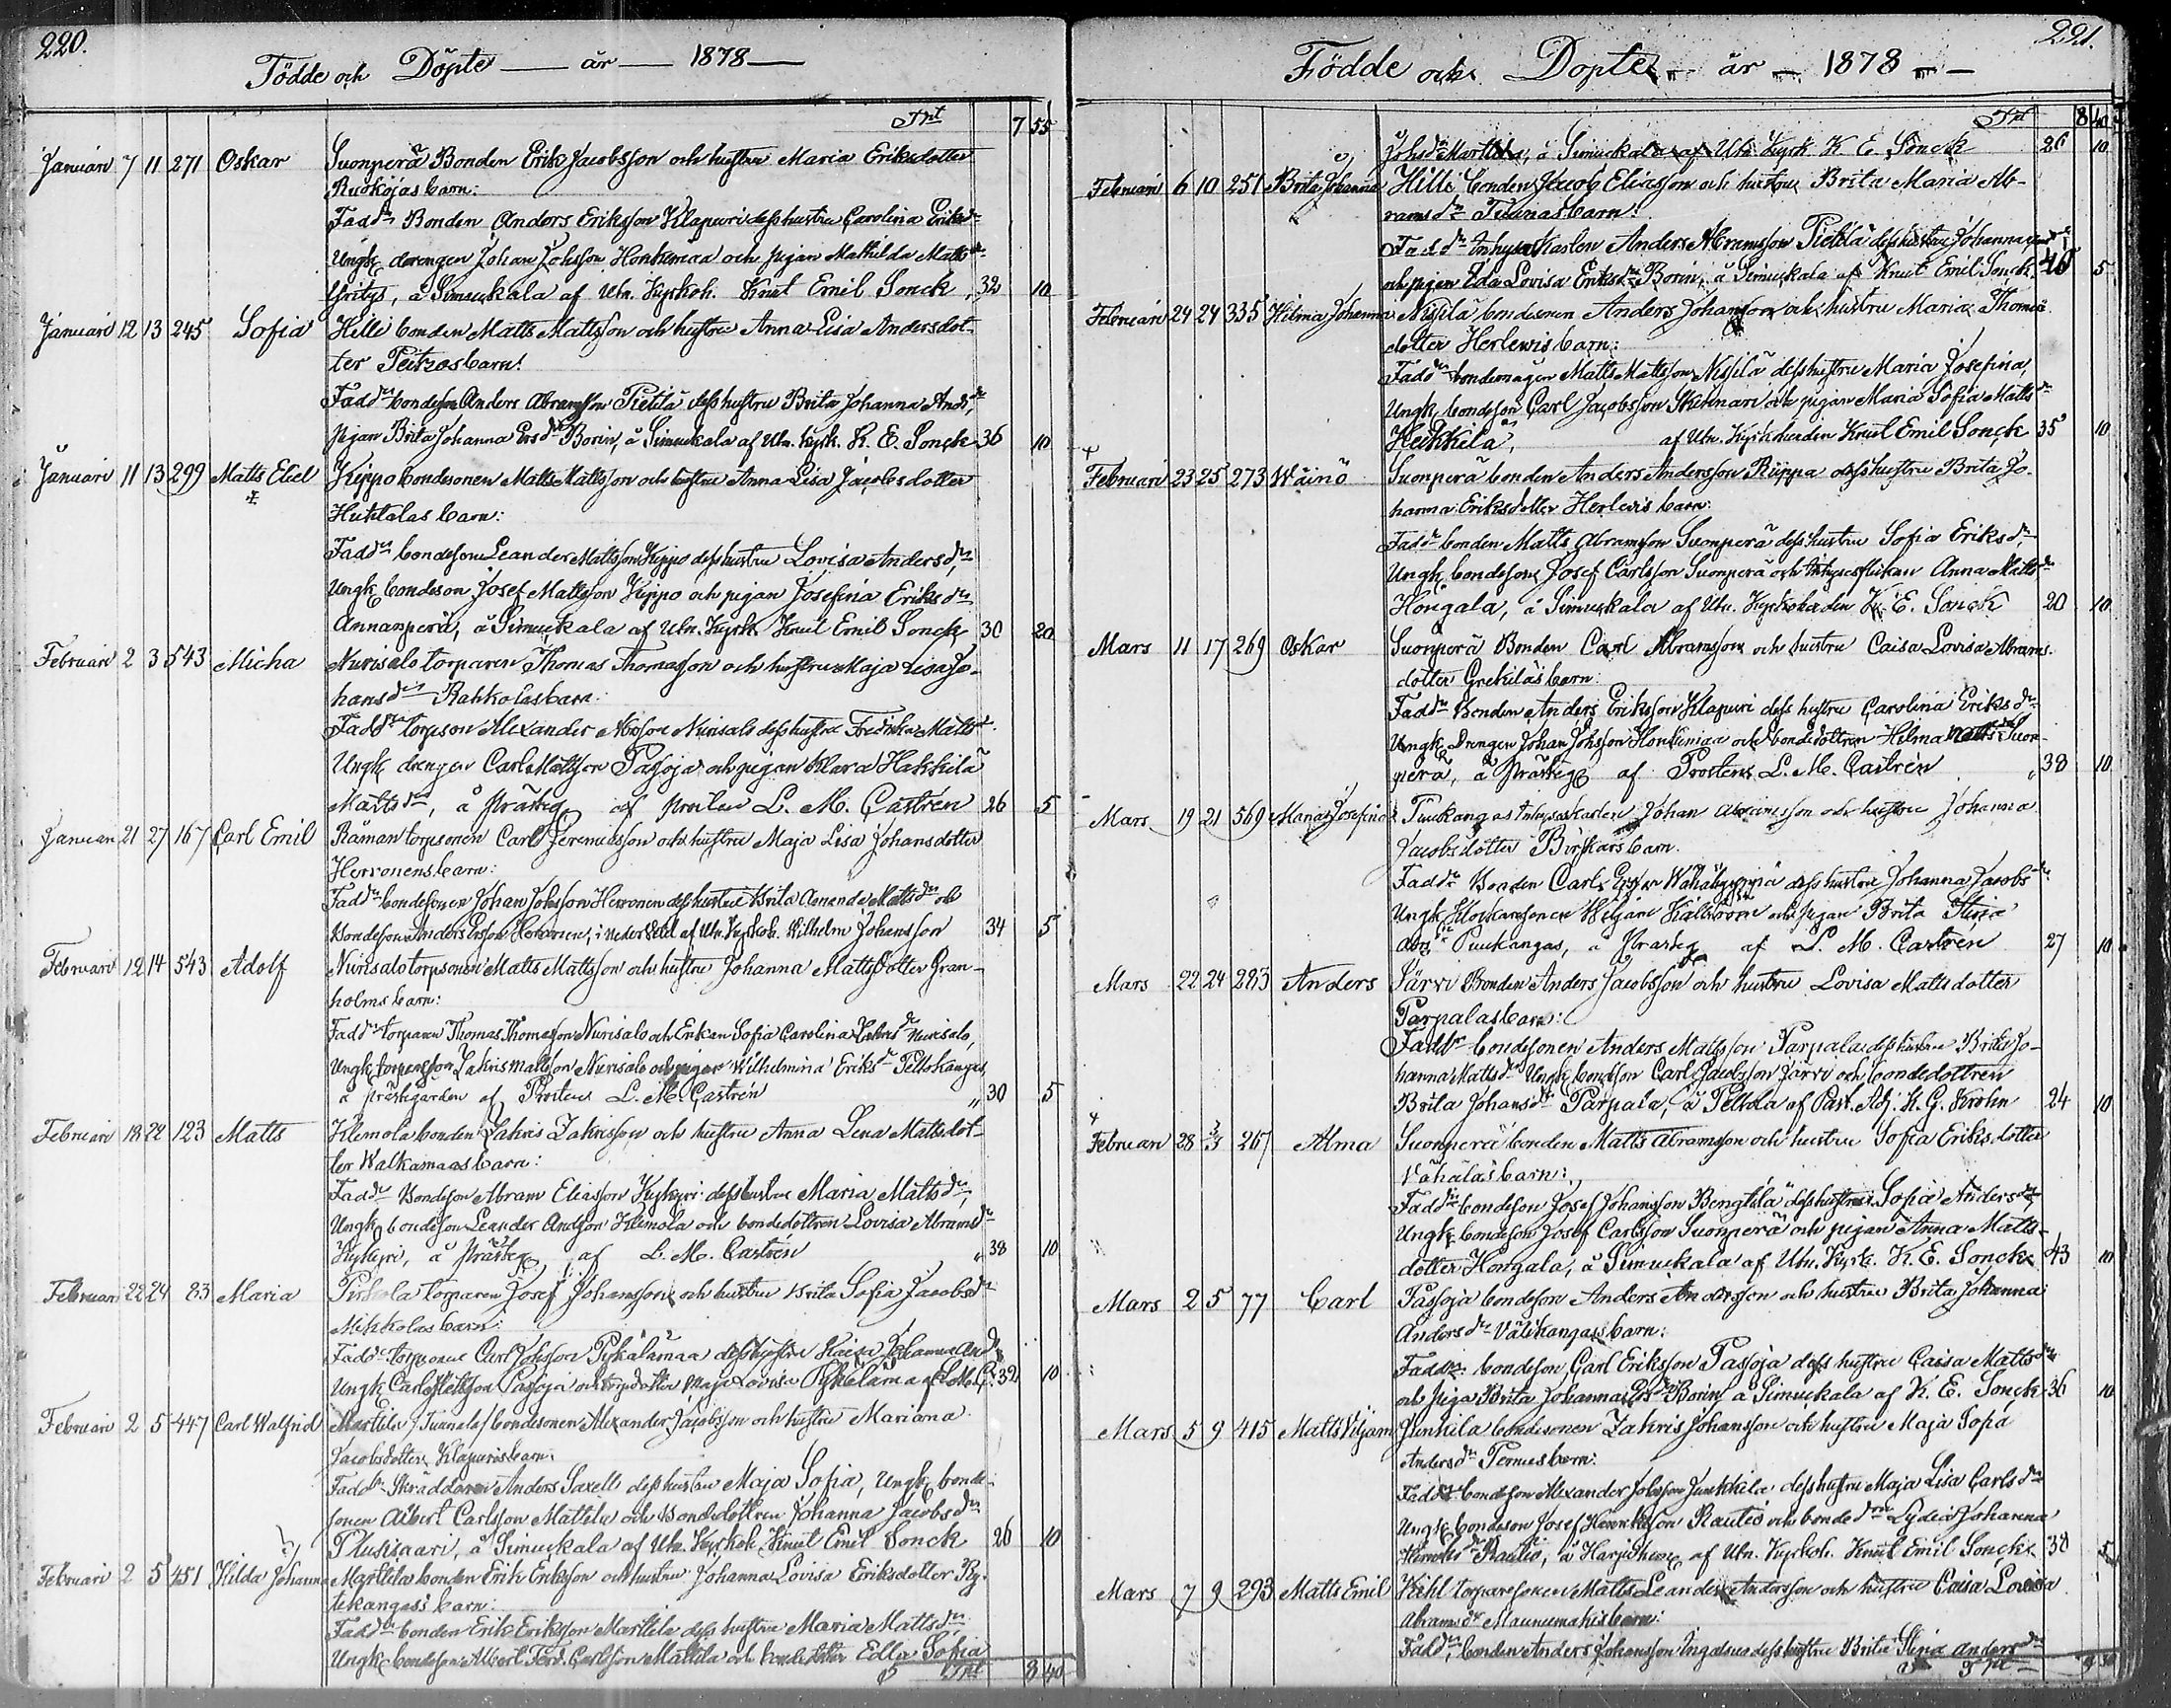 220.
Födde och Döpte — år — 1878 —
Trpt 7 55
Januari 7 11 271 Oskar Suonperä Bonden Erik Jacobsson och hustru Maria Eriksdotter
Ruokojas barn:
Fadd:r Bonden Anders Eriksson Klapuri dess hustru Carolina Eriksd:r
Ungk. drengen Johan Johsson Honkimaa och pigan Mathilda Mattsd:r
Yritys, å Simuckala af Utn. Kyrkoh. Knut Emil Sonck 32 10
Januari 12 13 245 Sofia Hilli bonden Matts Mattsson och hustru Anna Lisa Andersdot-
ter Peitzos barn:
Fadd:r bondeson Anders Abramsson Pietilä dess hustru Brita Johanna And:sd:r
pigan Brita Johanna Ersd:r Borin, å Simuckala af Utn. Kyrk. K. E. Sonck 36 10
Januari 11 13 299 Matts Eliel Kippo bondesonen Matts Mattsson och hustru Anna Lisa Jacobsdotter
Huhtalas barn:
Fadd:r bondeson Leander Mattsson Kippo dess hustru Lovisa Andersd:r
Ungk. bondeson Josef Mattsson Kippo och pigan Josefina Eriksd:r
Annanperä, å Simuckala af Utn. Kyrk. Knut Emil Sonck 30 20
Februari 2 3 543 Micha Nurisalo torparen Thomas Thomasson och hustru Maja Lisa Jo-
hansd:r Rahkolas barn:
Fadd:r torpson Alexander Nurisalo dess hustru Fredrika Mattsd:r
Ungk. drengen Carl Mattsson Passoja och pigan Klara Hakkila
Mattsd:r, å Prästeg. af Prosten L. M. Castrén 26 5
Januari 21 27 167 Carl Emil Råman torpsonen Carl Jeremiasson och hustru Maja Lisa Johansdotter
Herronens barn:
Fadd:r bondesonen Johan Johsson Herronen dess hustru Brita Amanda Mattsd:r och
bondeson Anders Ersson Herronen, i Nedervetil af Utn. Kyrkoh. Wilhelm Johansson 34 5
Februari 12 14 543 Adolf Nurisalo torpsonen Matts Mattsson och hustru Johanna Mattsdotter Gran-
holms barn:
Fadd:r torparen Thomas Thomasson Nurisalo och Enkan Sofia Carolina Nurisalo,
Ungk. torpson Zakris Mattsson Nurisalo och pigan Wilhelmina Eriksd:r Peltokangas
å prästegården af Prosten L. M. Castrén 30 5
Februari 18 22 123 Matts Klemola bonden Zakris Zakrisson och hustru Anna Lena Mattsdot-
ter Walkamaas barn:
Fadd:r Bondeson Abram Eliasson Kykyri dess hustru Maria Mattsd:r,
Ungk. bondeson Leander Andsson Klemola och bondedottren Lovisa Abramsd:r
Kykyri, å Prästeg. af L. M. Castrén 38 10
Februari 22 24 83 Maria Pirhola torparen Josef Johansson och hustru Brita Sofia Jacobsd:r
Mihkolas barn:
Fadd:r torpsonen Carl Johsson Pykälämaa dess hustru Kaisa Johanna And:r
Ungk. Carl Mattsson Passoja och torpdotter Maja Lovisa Pykälämaa af L. M. C. 32 10
Februari 2 5 447 Carl Walfrid Marttila /Tuunala/ bondesonen Alexander Jacobsson och hustru Mariana
Jacobsdotter Klapuris barn:
Fadd:r Skräddaren Anders Saxell dess hustru Maja Sofia, Ungk. bonde-
sonen Albert Carlsson Mattila och Bondedottren Johanna Jacobsd:r
Plusisaari, å Simuckala af Utn. Kyrkoh. Knut Emil Sonck 26 10
Februari 2 5 451 Hilda Johanna Marttila bonden Erik Eriksson och hustru Johanna Lovisa Eriksdotter Ry-
tikangas's barn:
Fadd:r bonden Erik Eriksson Marttila dess hustru Maria Mattsd:r
Ungk. bondeson Albert Ferd. Carlsson Mattila och bondedotter Edla Sofia
Trpt 8 40
221.
Födde och Döpte — år — 1878 —
Trpt 8 40
Johsd:r Marttila, å Simuckala af Utn. Kyrk. K. E. Sonck 26 10
Februari 6 10 251 Brita Johanna Hilli bonden Jacob Eliasson och hustru Brita Maria Ab-
ramsd:r Tuunas barn:
Fadd:r Inhyses Karlen Anders Abramsson Pietilä dess hustru Johanna
och pigan Eda Lovisa Eriksd:r Borin, å Simuckala af Knut Emil Sonck. 40 5
Februari 24 24 335 Hilma Johanna Nissilä bondsonen Anders Johansson och hustru Maria Thomas
dotter Herlevis barn:
Fadd:r bondemågen Matts Mattsson Nissilä dess hustru Maria Josefina,
Ungk. bondeson Carl Jacobsson och pigan Maria Sofia Mattsd:r
Heikkilä, af Utn. Kyrkoherden Knut Emil Sonck 35 10
Februari 23 25 273 Wäinö Suonperä bonden Anders Andersson Riippa dess hustru Brita Jo-
hanna Eriksdotter Herlevis barn:
Fadd:r bonden Matts Abramsson Suonperä dess hustru Sofia Eriksd:r,
Ungk. bondeson Josef Carlsson Suonperä och Inhysesflickan Anna Mattsd:r
Hongala, å Simuckala af Utn. Kyrkoherden K. E. Sonck 20 10
Mars 11 17 269 Oskar Suonperä Bonden Carl Abramsson och hustru Caisa Lovisa Abrams-
dotter Grekiläs barn:
Fadd:r Bonden Anders Eriksson Klapuri dess hustru Carolina Eriksd:r
Ungk. Drengen Johan Johsson Honkimaa och bondedottren Hilma Mattsd:r Suon-
perä, å Prästeg. af Prosten L. M. Castrén 38 10
Mars 19 21 569 Maria Josefina Puukangas Inhyseskarlen Johan Abramsson och hustru Johanna
Jacobsdotter Birskärs barn.
Fadd:r Bonden Carl Ersson dess hustru Johanna Jacobsd:r
Ungk. Klockaresonen Wiljam Källström och pigan Brita Stina
Puukangas, å Prästeg. af L. M. Castrén 27 10
Mars 22 24 283 Anders Järvi Bonden Anders Jacobsson och hustru Lovisa Mattsdotter
Parpalas barn:
Fadd:r bondesonen Anders Mattsson Parpala dess hustru Brita Jo-
hanna Mattsd:r Ungk. bondson Carl Jacobsson Järvi och bondedottren
Brita Johansd:r Parpala, å Peltola af Past. Adj. K. G. Krohn 24 10
Februari 28 3/3 267 Alma Suonperä bonden Matts Abramsson och hustru Sofia Eriksdotter
Vähäläs barn:
Fadd:r bondeson Josef Johansson Bengtilä dess hustru Sofia Andersd:r
Ungk. bondeson Josef Carlsson Suonperä och pigan Anna Matts-
dotter Hongala, å Simuckala af Utn. Kyrk. K. E. Sonck 43 10
Mars 2 5 77 Carl Passoja bondeson Anders Andersson och hustru Brita Johanna
Andersd:r Välikangas barn:
Fadd:r bondeson Carl Eriksson Passoja dess hustru Caisa Mattsd:r
och piga Brita Johanna Ersd:r Borin, å Simuckala af K. E. Sonck 36 10
Mars 5 9 415 Matts Viljam Junkila bondesonen Zakris Johansson och hustru Maja Sofia
Andersd:r Pernus barn:
Fadd:r bondeson Alexander Johsson Junkkila dess hustru Maja Lisa Carlsd:r
Ungk. bondeson Josef Henriksson Rautio och bonded:r Lydia Johanna
Henriksd:r Rautio, å Harjuhem af Utn. Kyrkoh. Knut Emil Sonck 38 5
Mars 7 9 293 Matts Emil Kihl torparesonen Matts Leander Andersson och hustru Caisa Lovisa
Abramsd:r Maunumäkis barn:
Fadd:r bonden Anders Johansson Ingalsuo dess hustru Brita Stina Andersd:r
Trpt